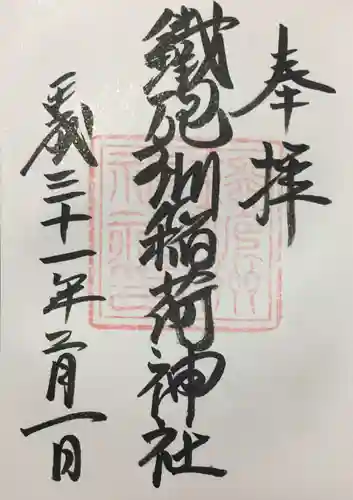 奉拝
鐵砲洲稲荷神社
平成三十一年二月一日